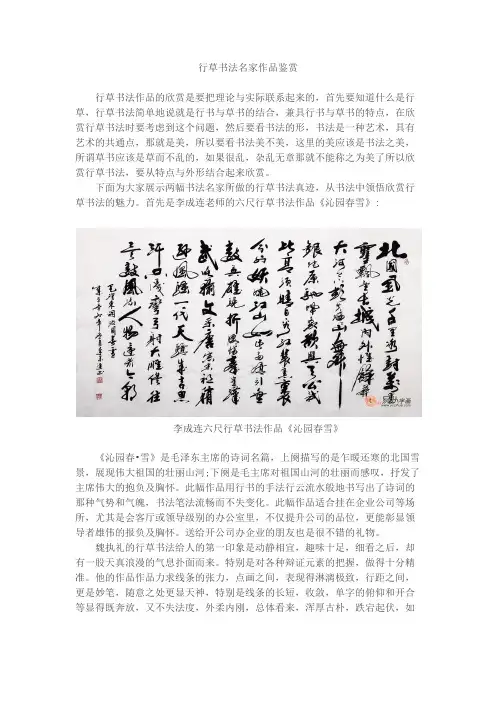 行草书法名家作品鉴赏
行草书法作品的欣赏是要把理论与实际联系起来的，首先要知道什么是行
草，行草书法简单地说就是行书与草书的结合，兼具行书与草书的特点，在欣
赏行草书法时要考虑到这个问题，然后要看书法的形，书法是一种艺术，具有
艺术的共通点，那就是美，所以要看书法美不美，这里的美应该是书法之美，
所谓草书应该是草而不乱的，如果很乱，杂乱无章那就不能称之为美了所以欣
赏行草书法，要从特点与外形结合起来欣赏。
下面为大家展示两幅书法名家所做的行草书法真迹，从书法中领悟欣赏行
草书法的魅力。首先是李成连老师的六尺行草书法作品《沁园春雪》：
北國風光千里冰封萬里
雪飄望長城內外惟餘莽莽
大河上下頓失滔滔山舞
銀蛇原馳蠟象欲與天公試
比高須晴日看紅裝素裹
分外妖嬈江山如此多嬌引無
數英雄競折腰惜秦皇漢
武略輸文采唐宗宋祖稍
遜風騷一代天驕成吉思
汗只識彎弓射大雕俱往
矣數風流人物還看今朝
毛澤東詞沁園春雪
李成连六尺行草书法作品《沁园春雪》
《沁园春•雪》是毛泽东主席的诗词名篇，上阕描写的是乍暖还寒的北国雪
景，展现伟大祖国的壮丽山河;下阕是毛主席对祖国山河的壮丽而感叹、抒发了
主席伟大的抱负及胸怀。此幅作品用行书的手法行云流水般地书写出了诗词的
那种气势和气魄，书法笔法流畅而不失变化。此幅作品适合挂在企业公司等场
所，尤其是会客厅或领导级别的办公室里，不仅提升公司的品位，更能彰显领
导者雄伟的报负及胸怀。送给开公司办企业的朋友也是很不错的礼物。
魏执礼的行草书法给人的第一印象是动静相宜，趣味十足，细看之后，却
有一股天真浪漫的气息扑面而来。特别是对各种辩证元素的把握，做得十分精
准。他的作品作品力求线条的张力，点画之间，表现得淋漓极致，行距之间，
更是妙笔，随意之处更显天神，特别是线条的长短，收敛，单字的俯仰和开合
等显得既奔放，又不失法度，外柔内刚，总体看来，浑厚古朴，跌宕起伏，如